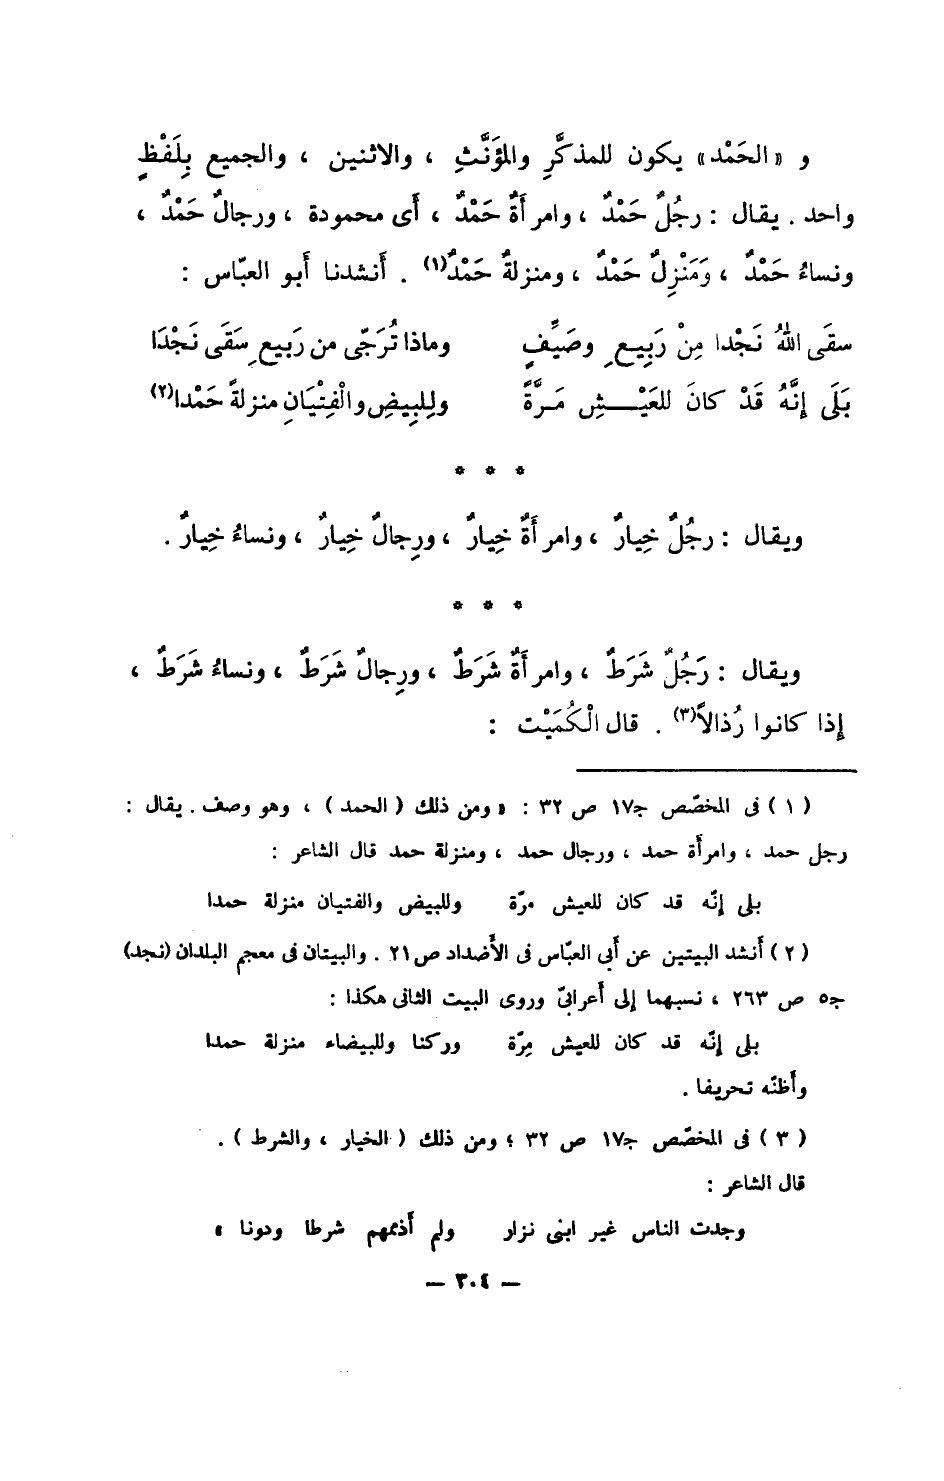 و «الحَمْد» يكون للمذكَّرِ والمؤَنَّثِ ، والاثنين ، والجميع بِلَفْظٍ
واحد . يقال : رجُلٌ حَمْدٌ ، وامرأَةٌ حَمْدٌ ، أَى محمودة ، ورجالٌ حَمْدٌ ،
ونساءُ حَمْدٌ ، وَمَنْزِلٌ حَمْدٌ ، ومنزلةٌ حَمْدٌ(١) . أَنشدنا أَبو العبّاس :
سقَى اللهُ نَجْدا مِنْ رَبِيعٍ وصَيِّفٍ وماذا تُرَجّى من رَبيعٍ سَقَى نَجْدَا
بَلَى إِنَّهُ قَدْ كانَ للعَيْـــشِ مَرَّةً ولِلبِيضِ والْفِتْيَانِ منزلةً حَمْدا(٢)
* * *
ويقال : رجُلٌ خِيارٌ ، وامرأَةٌ خِيارٌ ، ورِجالٌ خِيارٌ ، ونساءُ خِيارٌ .
* * *
ويقال : رَجُلٌ شَرَطٌ ، وامرأَةٌ شَرَطٌ ، ورِجالٌ شَرَطٌ ، ونساءُ شَرَطٌ ،
إِذا كانوا رُذالاً(٣) . قال الْكُمَيْت :
(١) فى المخصّص ج١٧ ص ٣٢ : «ومن ذلك (الحمد) ، وهو وصف . يقال :
رجل حمد ، وامرأَة حمد ، ورجال حمد ، ومنزلة حمد قال الشاعر :
بلى إنّه قد كان للعيش مرّة وللبيض والفتيان منزلة حمدا
(٢) أَنشد البيتين عن أَبى العبّاس فى الأَضداد ص ٢١ . والبيتان فى معجم البلدان (نجد)
ج٥ ص ٢٦٣ ، نسبهما إلى أَعرابىّ وروى البيت الثانى هكذا :
بلى إنّه قد كان للعيش مِرّة وركنا وللبيضاء منزلة حمدا
وأَظنّه تحريفا .
(٣) فى المخصّص ج١٧ ص ٣٢ ؛ ومن ذلك (الخيار ، والشرط) .
قال الشاعر :
وجدت الناس غير ابنى نزار ولم أَذممهم شرطا ودونا »
— ٣٠٤ —